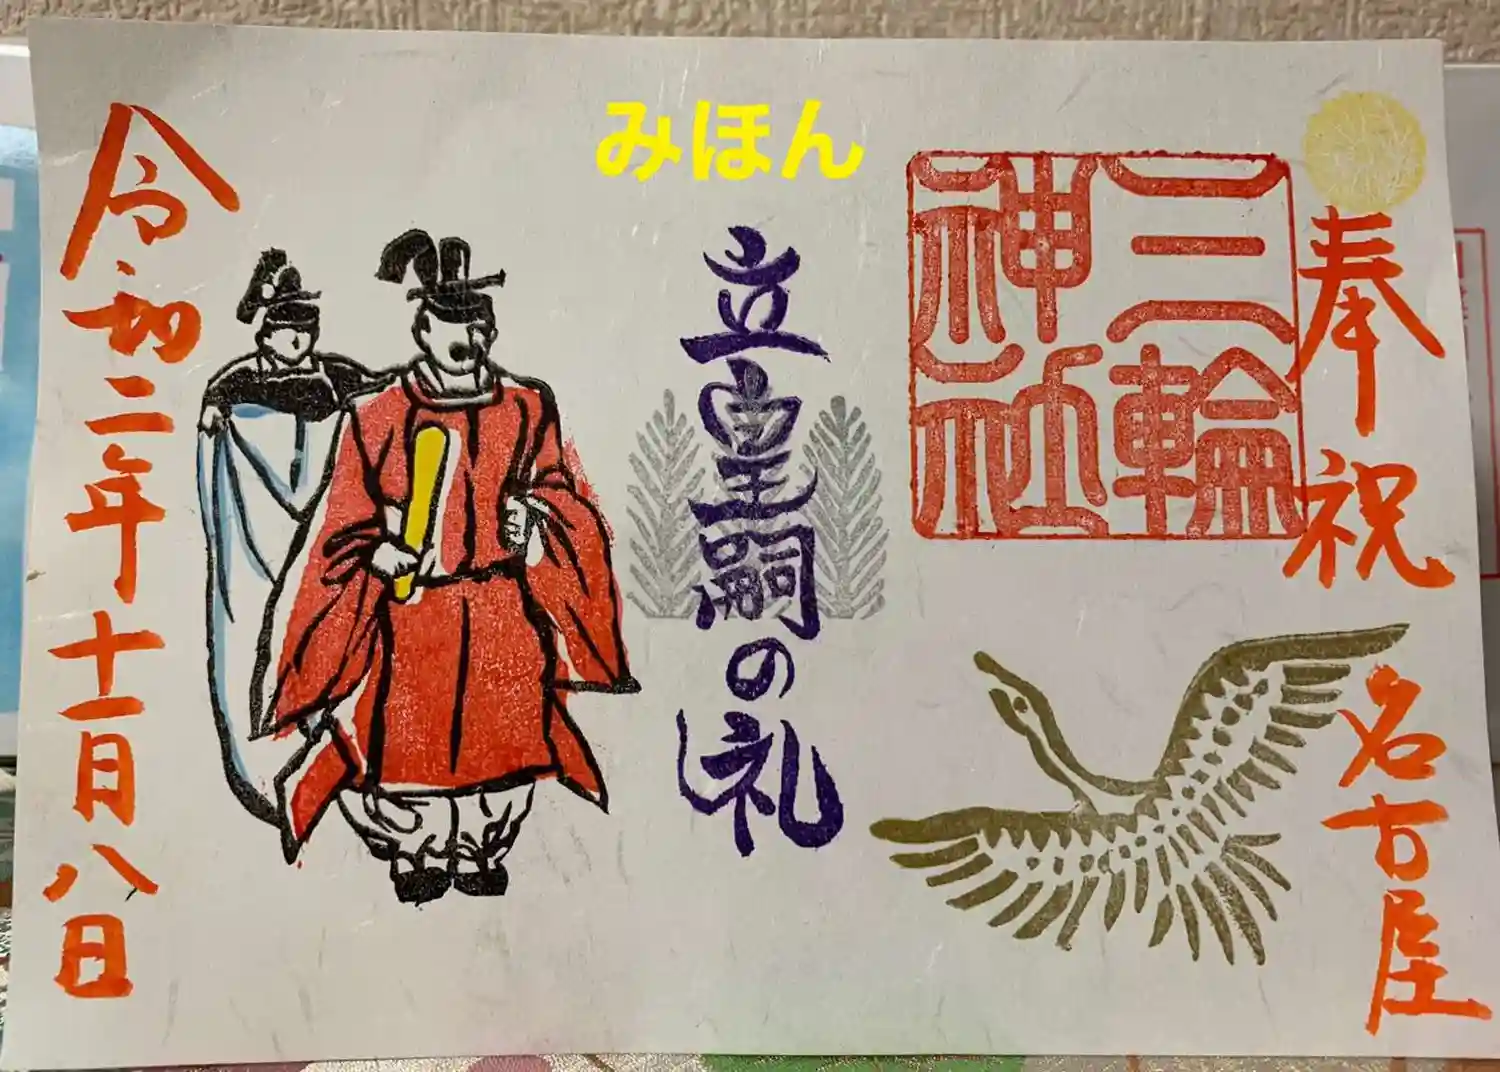 みほん
奉祝
名古屋
三輪
神社
立皇嗣の礼
令和二年十一月八日